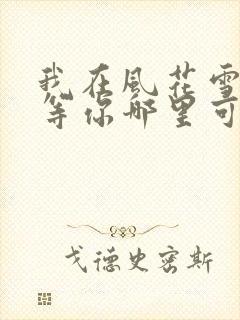 我在風花雪
等你那里可
戈德史密斯